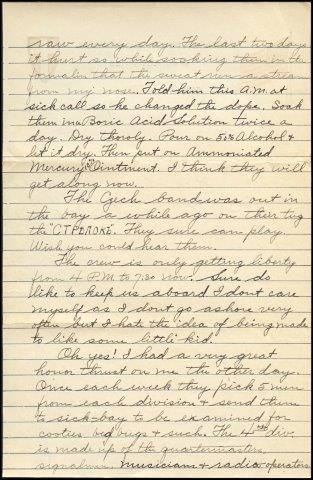 raw every day. The last two days
it hurt so while soaking them in the
formalin that the sweat run a stream
from my nose. Told him this A.M. at
sick call so he changed the dope. Soak
them in a Boric Acid solution twice a
day. Dry thoroly. Pour on 50% Alcohol &
let it dry. Then put on Ammoniated
Mercury Ointment. I think they will
get along now.
The Czech band was out in
the bay a while ago on their tug
the "CTPEΛOK". They sure can play.
Wish you could hear them.
The crew is only getting liberty
from 4 P.M. to 7:30 now. Sure do
like to keep us aboard I dont care
myself as I dont go ashore very
often but I hate the idea of being made
to like some little kid.
Oh yes! I had a very great
honor thrust on me the other day.
Once each week they pick 5 men
from each division & send them
to sick-bay to be examined for
cooties bed bugs & such. The 4th div.
is made up of the quartermasters,
signalmen, musicians & radio operators